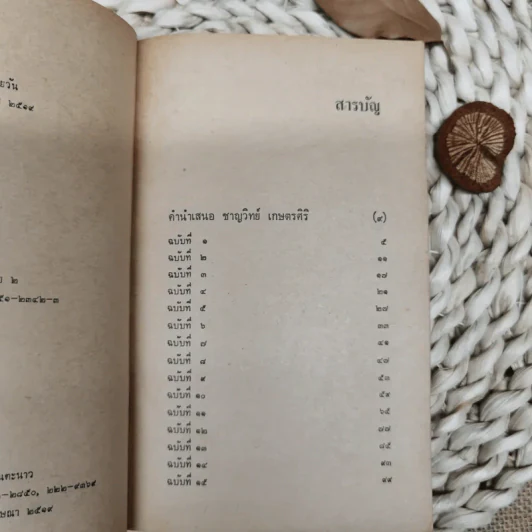 ยวัน
๒๕๑๙
๒
๕๑-๒๓๔๒-๓
นตะนาว
๑-๒๘๕๐, ๒๒๒-๙๓๖๙
ษณา ๒๕๑๙
สารบัญ
คำนำเสนอ ชาญวิทย์ เกษตรศิริ (๙)
ฉบับที่ ๑ ๕
ฉบับที่ ๒ ๑๑
ฉบับที่ ๓ ๑๗
ฉบับที่ ๔ ๒๑
ฉบับที่ ๕ ๒๗
ฉบับที่ ๖ ๓๓
ฉบับที่ ๗ ๔๑
ฉบับที่ ๘ ๔๗
ฉบับที่ ๙ ๕๓
ฉบับที่ ๑๐ ๕๙
ฉบับที่ ๑๑ ๖๕
ฉบับที่ ๑๒ ๗๗
ฉบับที่ ๑๓ ๘๕
ฉบับที่ ๑๔ ๙๓
ฉบับที่ ๑๕ ๙๙